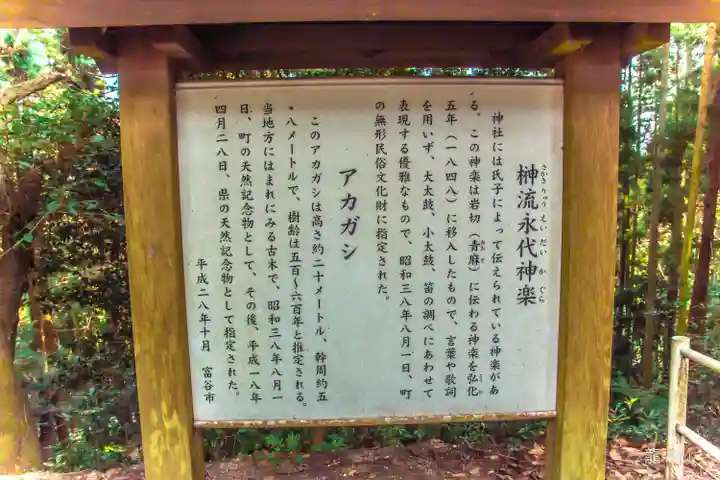 榊流永代神楽
さかき りゅう えいだい かぐら
神社には氏子によって伝えられている神楽があ
る。この神楽は岩切(青麻)に伝わる神楽を弘化
五年(一八四八)に移入したもので、言葉や歌詞
を用いず、大太鼓、小太鼓、笛の調べにあわせて
表現する優雅なもので、昭和三八年八月一日、町
の無形民俗文化財に指定された。
アカガシ
このアカガシは高さ約二十メートル、幹周約五
・八メートルで、樹齢は五百~六百年と推定される。
当地方にはまれにみる古木で、昭和三八年八月一
日、町の天然記念物として、その後、平成一八年
四月二八日、県の天然記念物として指定された。
平成二八年十月 富谷市